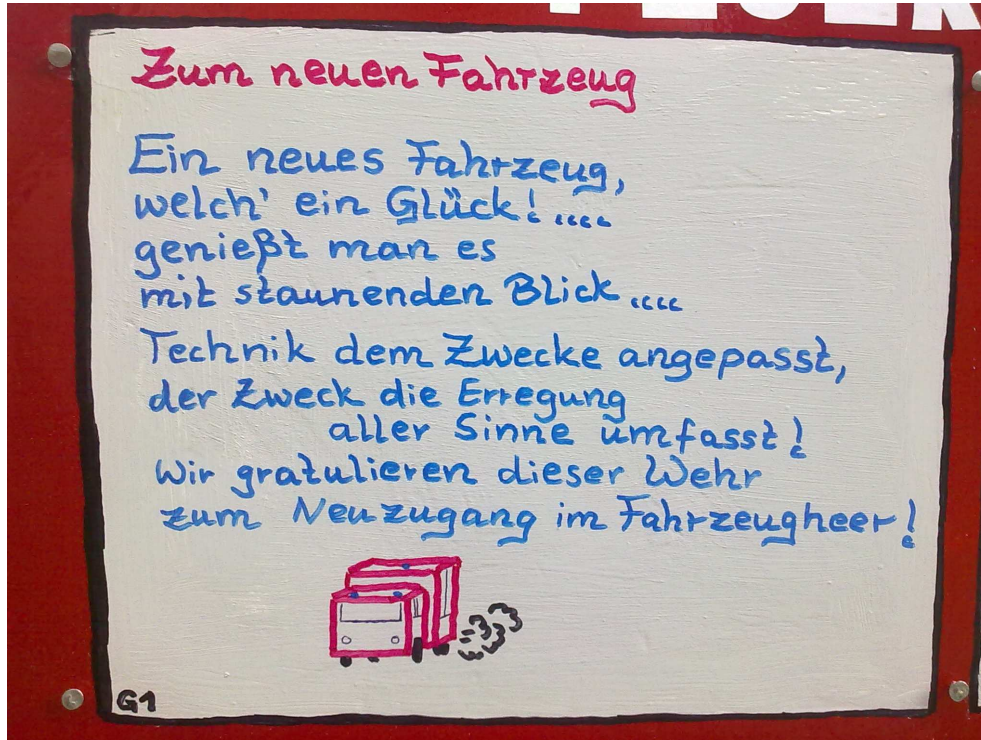 Zum neuen Fahrzeug
Ein neues Fahrzeug,
welch' ein Glück!....
genießt man es
mit staunenden Blick....
Technik dem Zwecke angepasst,
der Zweck die Erregung
aller Sinne umfasst!
Wir gratulieren dieser Wehr
zum Neuzugang im Fahrzeugheer!
G1